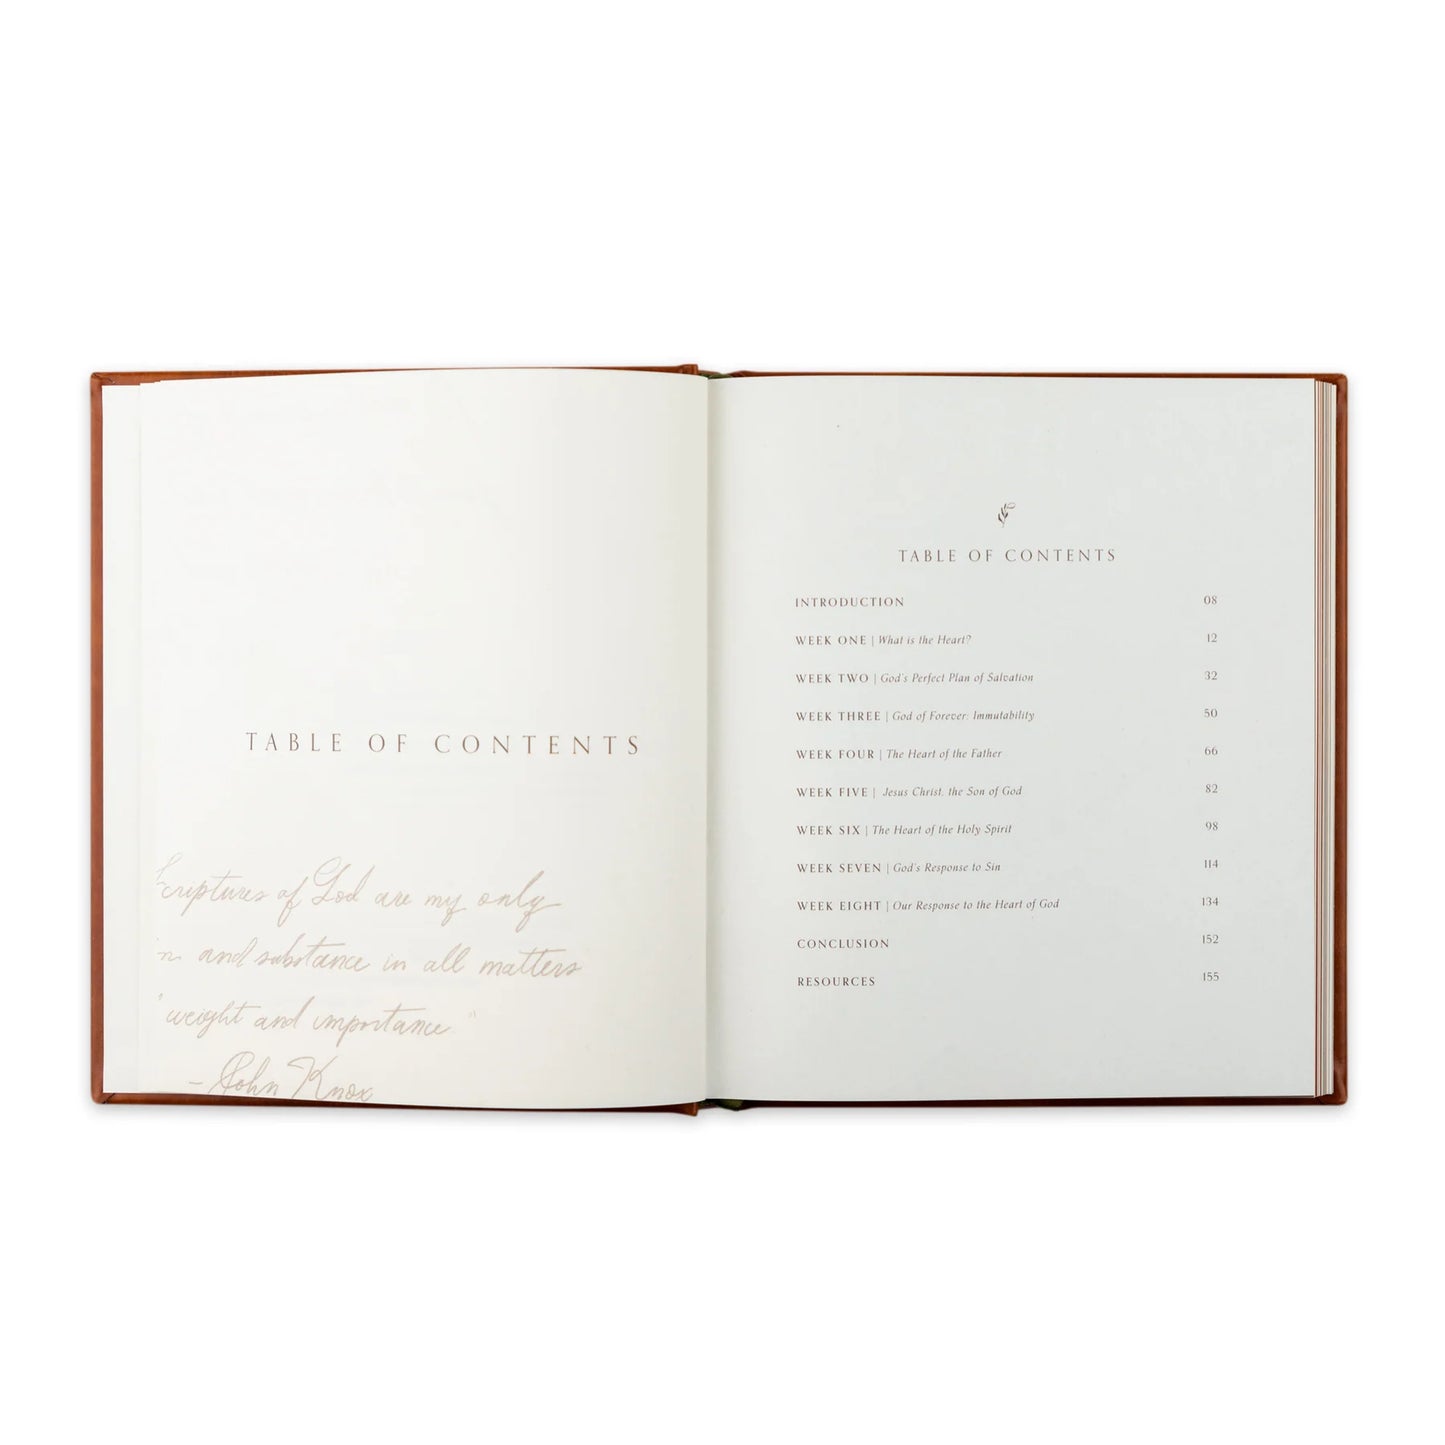 TABLE OF CONTENTS
Scriptures of God are my only
and substance in all matters
weight and importance"
- John Knox
TABLE OF CONTENTS
INTRODUCTION 08
WEEK ONE | What is the Heart? 12
WEEK TWO | God's Perfect Plan of Salvation 32
WEEK THREE | God of Forever: Immutability 50
WEEK FOUR | The Heart of the Father 66
WEEK FIVE | Jesus Christ, the Son of God 82
WEEK SIX | The Heart of the Holy Spirit 98
WEEK SEVEN | God's Response to Sin 114
WEEK EIGHT | Our Response to the Heart of God 134
CONCLUSION 152
RESOURCES 155